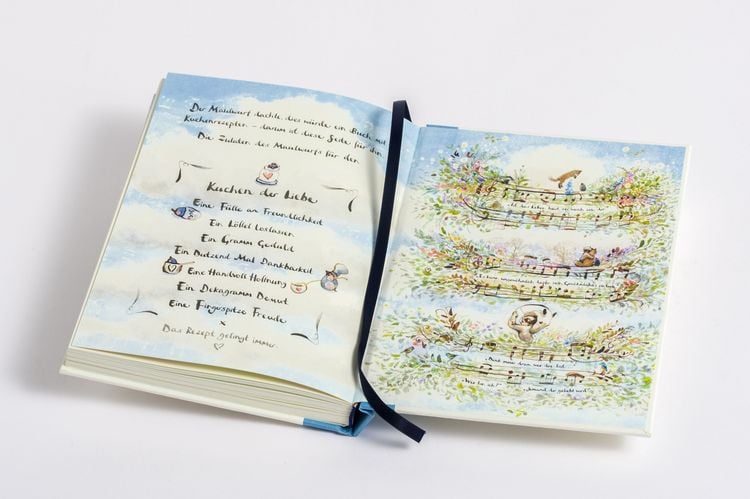 Der Maulwurf dachte, dies würde ein Buch mit
Kuchenrezepten – darum ist diese Seite für ihn.
Die Zutaten des Maulwurfs für den
Kuchen der Liebe
Eine Fülle an Freundlichkeit
Ein Löffel Loslassen
Ein Gramm Geduld
Ein Dutzend Mal Dankbarkeit
Eine Handvoll Hoffnung
Ein Dekagramm Demut
Eine Fingerspitze Freude
x
Das Rezept gelingt immer.
"Wer bin ich?" "Jemand der geliebt wird"